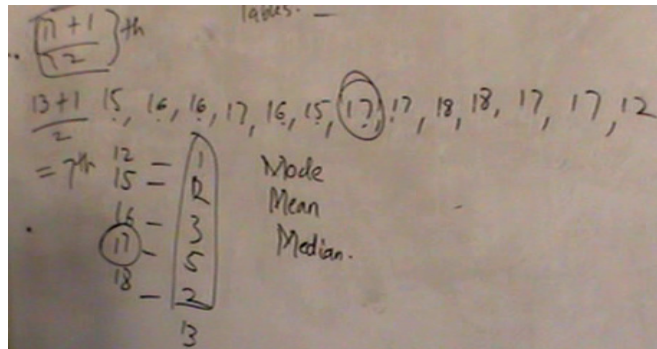 Tables. —
(n+1/2)th
13+1/2 15, 16, 16, 17, 16, 15, 17, 17, 18, 18, 17, 17, 12
= 7th
12 – 1
15 – 2
16 – 3
17 – 5
18 – 2
13
Mode
Mean
Median.